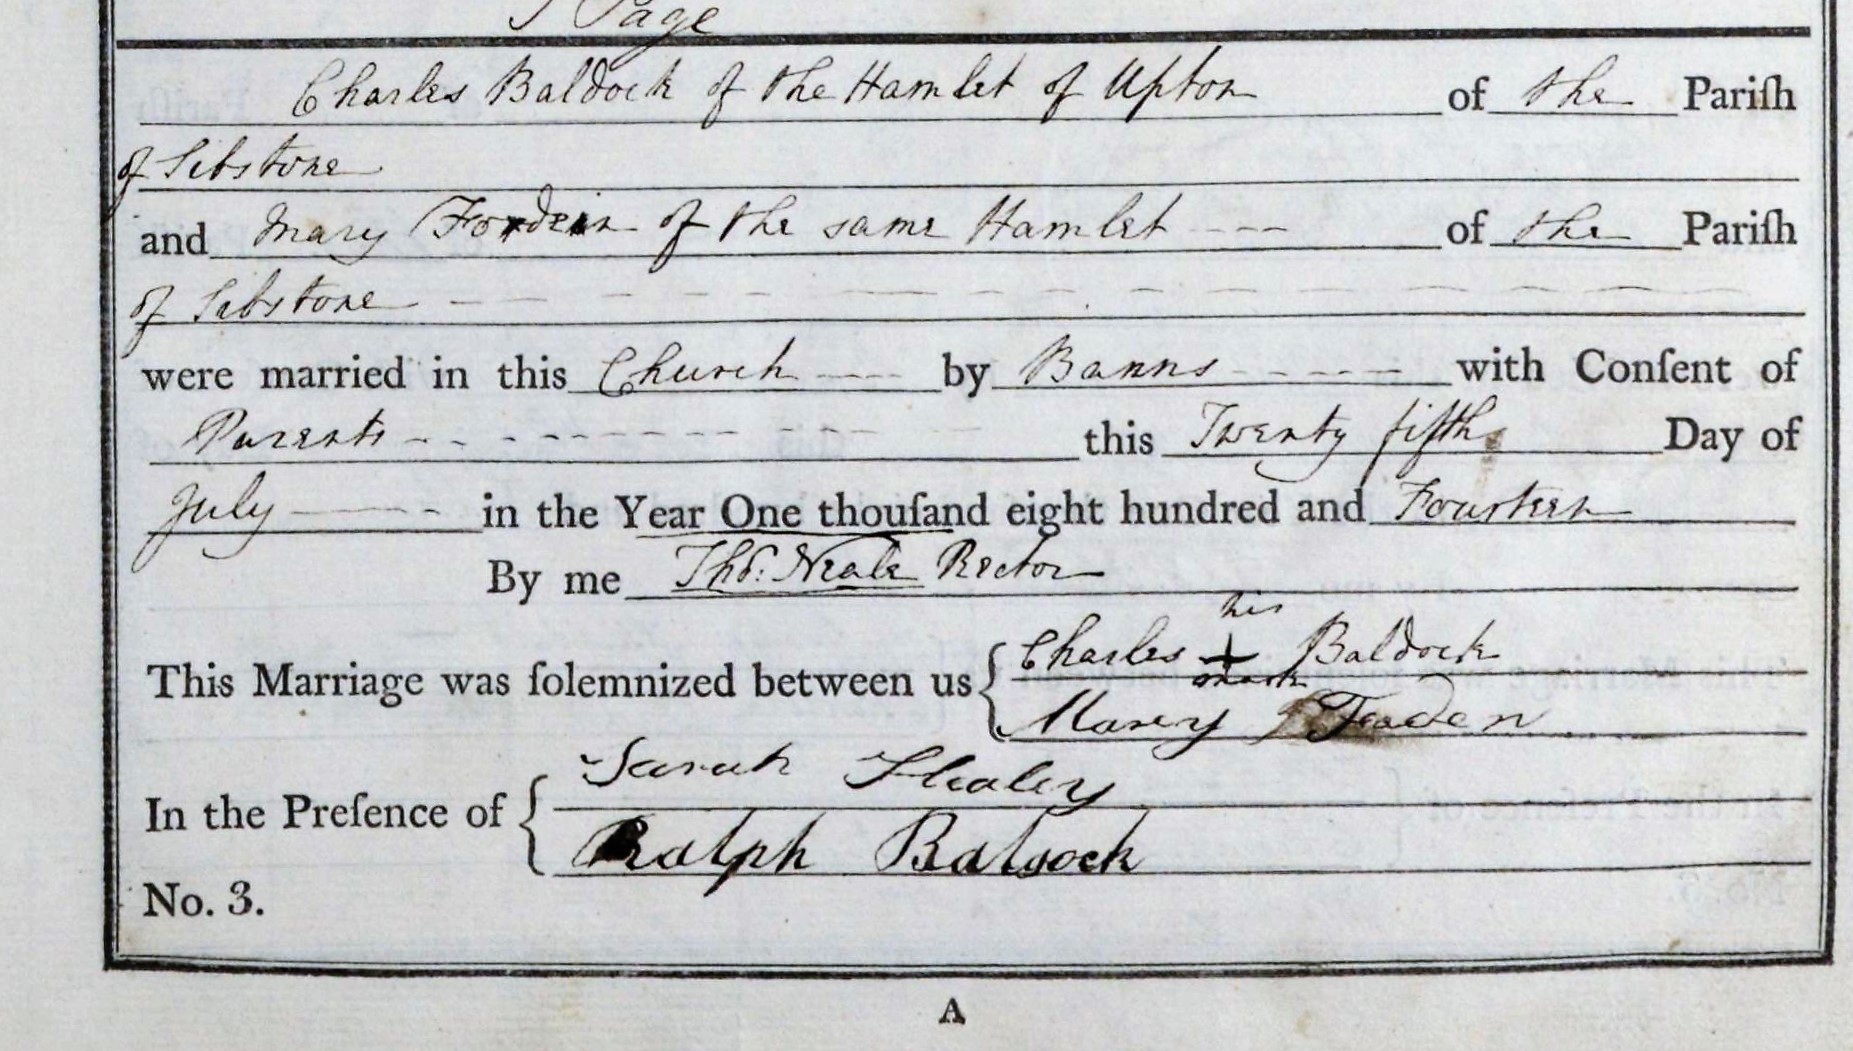 Page
Charles Baldock of the Hamlet of Upton of the Pariſh
of Sibstone
and Mary of the same Hamlet ---- of the Pariſh
of Sibstone
were married in this Church by Banns with Conſent of
Parents this Twenty fifth Day of
July in the Year One thouſand eight hundred and Fourteen
By me Thos. Neale Rector
his
This Marriage was ſolemnized between us { Charles + Baldock
mark
Mary
Sarah
In the Preſence of {
Ralph Baldock
No. 3.
A